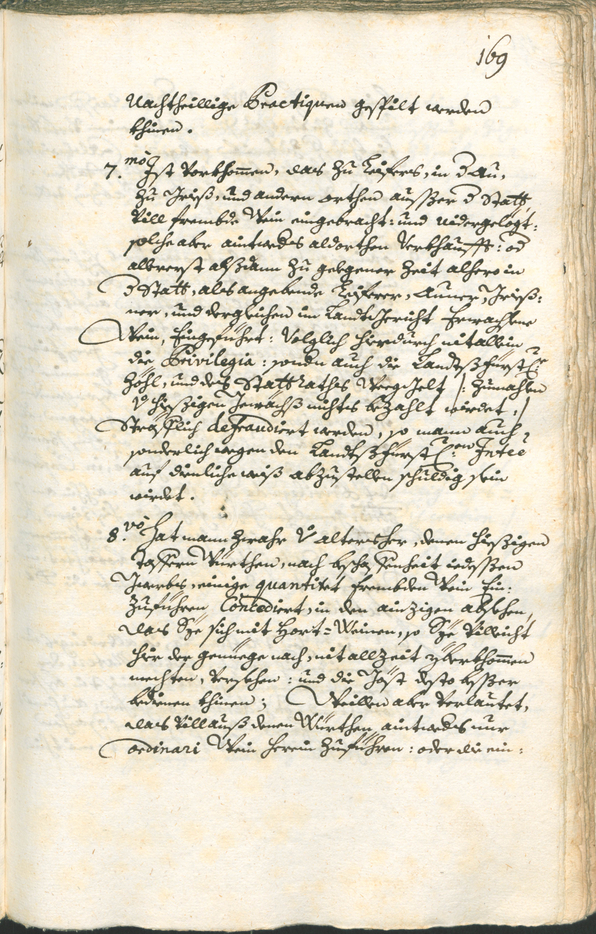 169
Nachtheillige Practiquen gespilt werden
khinen.
7.mo Ist vorkhommen, das zu Leifers, in d Au,
zu Griß, und andern orthen ausser d Statt
vill frembde Wein eingebracht: und nidergelegt:
solche aber aintweders aldorthen verkhaufft: od
alsdann zu gelegener Zeit alhero in
d Statt, als angebende Leiferer, Auner, Grieß:
ner, und dergleichen im Landtgericht Erwachsene
Wein, Eingeführt: volglich hierdurch nit allein
die Privilegia: sondern auch die Landtsfürstl:
Zöhl, und des Stattrathes Weeggelt /: zumahlen
d hiesigen gewächß nichts bezahlt wierdet :/
Sträfflich defraudiert werden, so mann auch
sonderlich wegen den Landtsfürstl:en Intee
auf dienliche weiß abzustellen schuldig sein
wirdet.
8.vo Hat mann zwahr v alters her, denen hiesigen
Würthen, nach beschaffenheit iedessen
Gwerbs, einige quantitet frembden Wein Ein:
zuführen Concediert, in den ainzigen absehen,
das Sye sich mit Hort-Weinen, so Sye villeicht
hir der genüege nach, nit allzeit yberkhommen
mechten, versehen: und die Gäst desto besser
bedienen khinen; Weillen aber verlautet,
das vill auß denen Würthen aintweders nur
ordinari Wein herein zuführen: oder die ein: